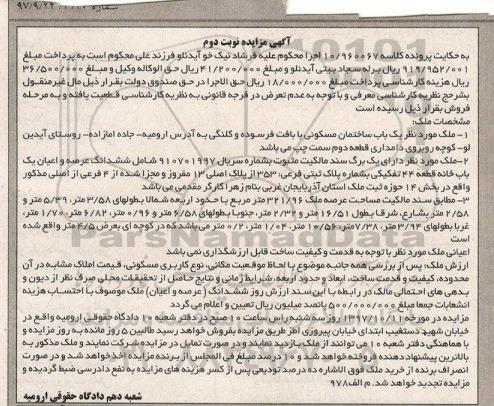 شماره ۹۷/۹/۲۴
آگهی مزایده نوبت دوم
به حکایت پرونده کلاسه ۱۰/۹۶۰۰۶۷ اجرا محکوم علیه فرشاد نیک خو آیدنلو فرزند علی محکوم است به پرداخت مبلغ
۹۱۹/۹۵۲/۰۰۱ ریال برله سجاد بیتی آیدنلو و مبلغ ۴۱/۲۰۰/۰۰۰ ریال حق الوکاله وکیل و مبلغ ۳۶/۵۰۰/۰۰۰
ریال هزینه کارشناسی پرداخت مبلغ ۱۸/۰۰۰/۰۰۰ ریال حق الاجرا در حق صندوق دولت بقرار ذیل مال غیرمنقول
بشرح نظریه کارشناسی معرفی و با توجه به عدم تعرض در فرجه قانونی به نظریه کارشناسی قطعیت یافته و به مرحله
فروش بقرار ذیل رسیده است
مشخصات ملک:
۱- ملک مورد نظر یک باب ساختمان مسکونی با بافت فرسوده و کلنگی به آدرس ارومیه- جاده امازاده- روستای آیدین
لو- کوچه روبروی دامداری قطعه دوم سمت چپ می باشد
۲- ملک مورد نظر دارای یک برگ سند مالکیت مثبوت بشماره سریال ۹۱۰۷۰۱۹۹۷ شامل ششدانگ عرصه و اعیان یک
باب خانه قطعه ۴۴ تفکیکی بشماره پلاک ثبتی فرعی: ۳۵۳ از پلاک اصلی ۱۳ مفروز و مجزا شده از ۴ فرعی از اصلی مذکور
واقع در بخش ۱۴ حوزه ثبت ملک استان آذربایجان غربی بنام زهرا کارگر مقدمی می باشد
۳- مطابق سند مالکیت مساحت عرصه ملک ۳۲۱/۹۶ متر مربع با حدود اربعه شمالا بطولهای ۳/۵۸ متر، ۵/۳۹ متر و
۲/۵۸ متر بشارع، شرقا بطول ۱۶/۵۱ متر و ۲/۳۲ متر، جنوبا بطولهای ۶/۵۸ متر و ۰/۹۶ متر، ۶/۸۲ متر، ۱/۷۰ متر،
غربا بطولهای ۳/۹۴ متر، ۷/۳۸ متر، ۱۰/۵۶ متر، ۱/۰۴ متر، ۰/۲ متر می باشد که در کوچه ای بعرض ۴/۵ متر واقع شده
است
اعیانی ملک مورد نظر با توجه به قدمت و کیفیت ساخت قابل ارزشگذاری نمی باشد
ارزش ملک: پس از بررسی همه جانبه موضوع با لحاظ موقعیت مکانی، نوع کاربری مسکونی، قیمت املاک مشابه در آن
محدوده، کیفیت و قدمت ساخت، ابعاد و حدود اربعه، شرایط زمانی و نتایج حاصل از تحقیقات محلی صرف نظر از دیون و
بدهی های احتمالی مالک در رابطه با این سند ارزش روز ششدانگ (عرصه و اعیان) ملک موصوف با احتساب هزینه
انشعابات جمعا مبلغ ۵۰۰/۰۰۰/۰۰۰ پانصد میلیون ریال تعیین و اعلام می گردد
مزایده در مورخه ۱۳۹۷/۱۰/۱۱ روز سه شنبه راس ساعت ۱۰ صبح در دفتر شعبه ۱۰ دادگاه حقوقی ارومیه واقع در
خیابان شهید دستغیب ابتدای خیابان پیروزی اطاق طریق مزایده بفروش خواهد رسید طالبین ۵ روز مانده به روز مزایده و
با هماهنگی دفتر شعبه ۱۰ می توانند از ملک بازدید نمایند و در صورت تمایل در مزایده شرکت نمایند و ملک مذکور به
بالاترین پیشنهاد دهنده فروخته خواهد شد و ۱۰ درصد مبلغ فی المجلس از برنده مزایده اخذ خواهد شد و در صورت
انصراف برنده از خرید ملک فوق الاشاره ده درصد تودیعی پس از کسر هزینه های مزایده به نفع دادرسی ضبط گردیده و
مزایده تجدید خواهد شد. م الف ۹۷۸
شعبه دهم دادگاه حقوقی ارومیه